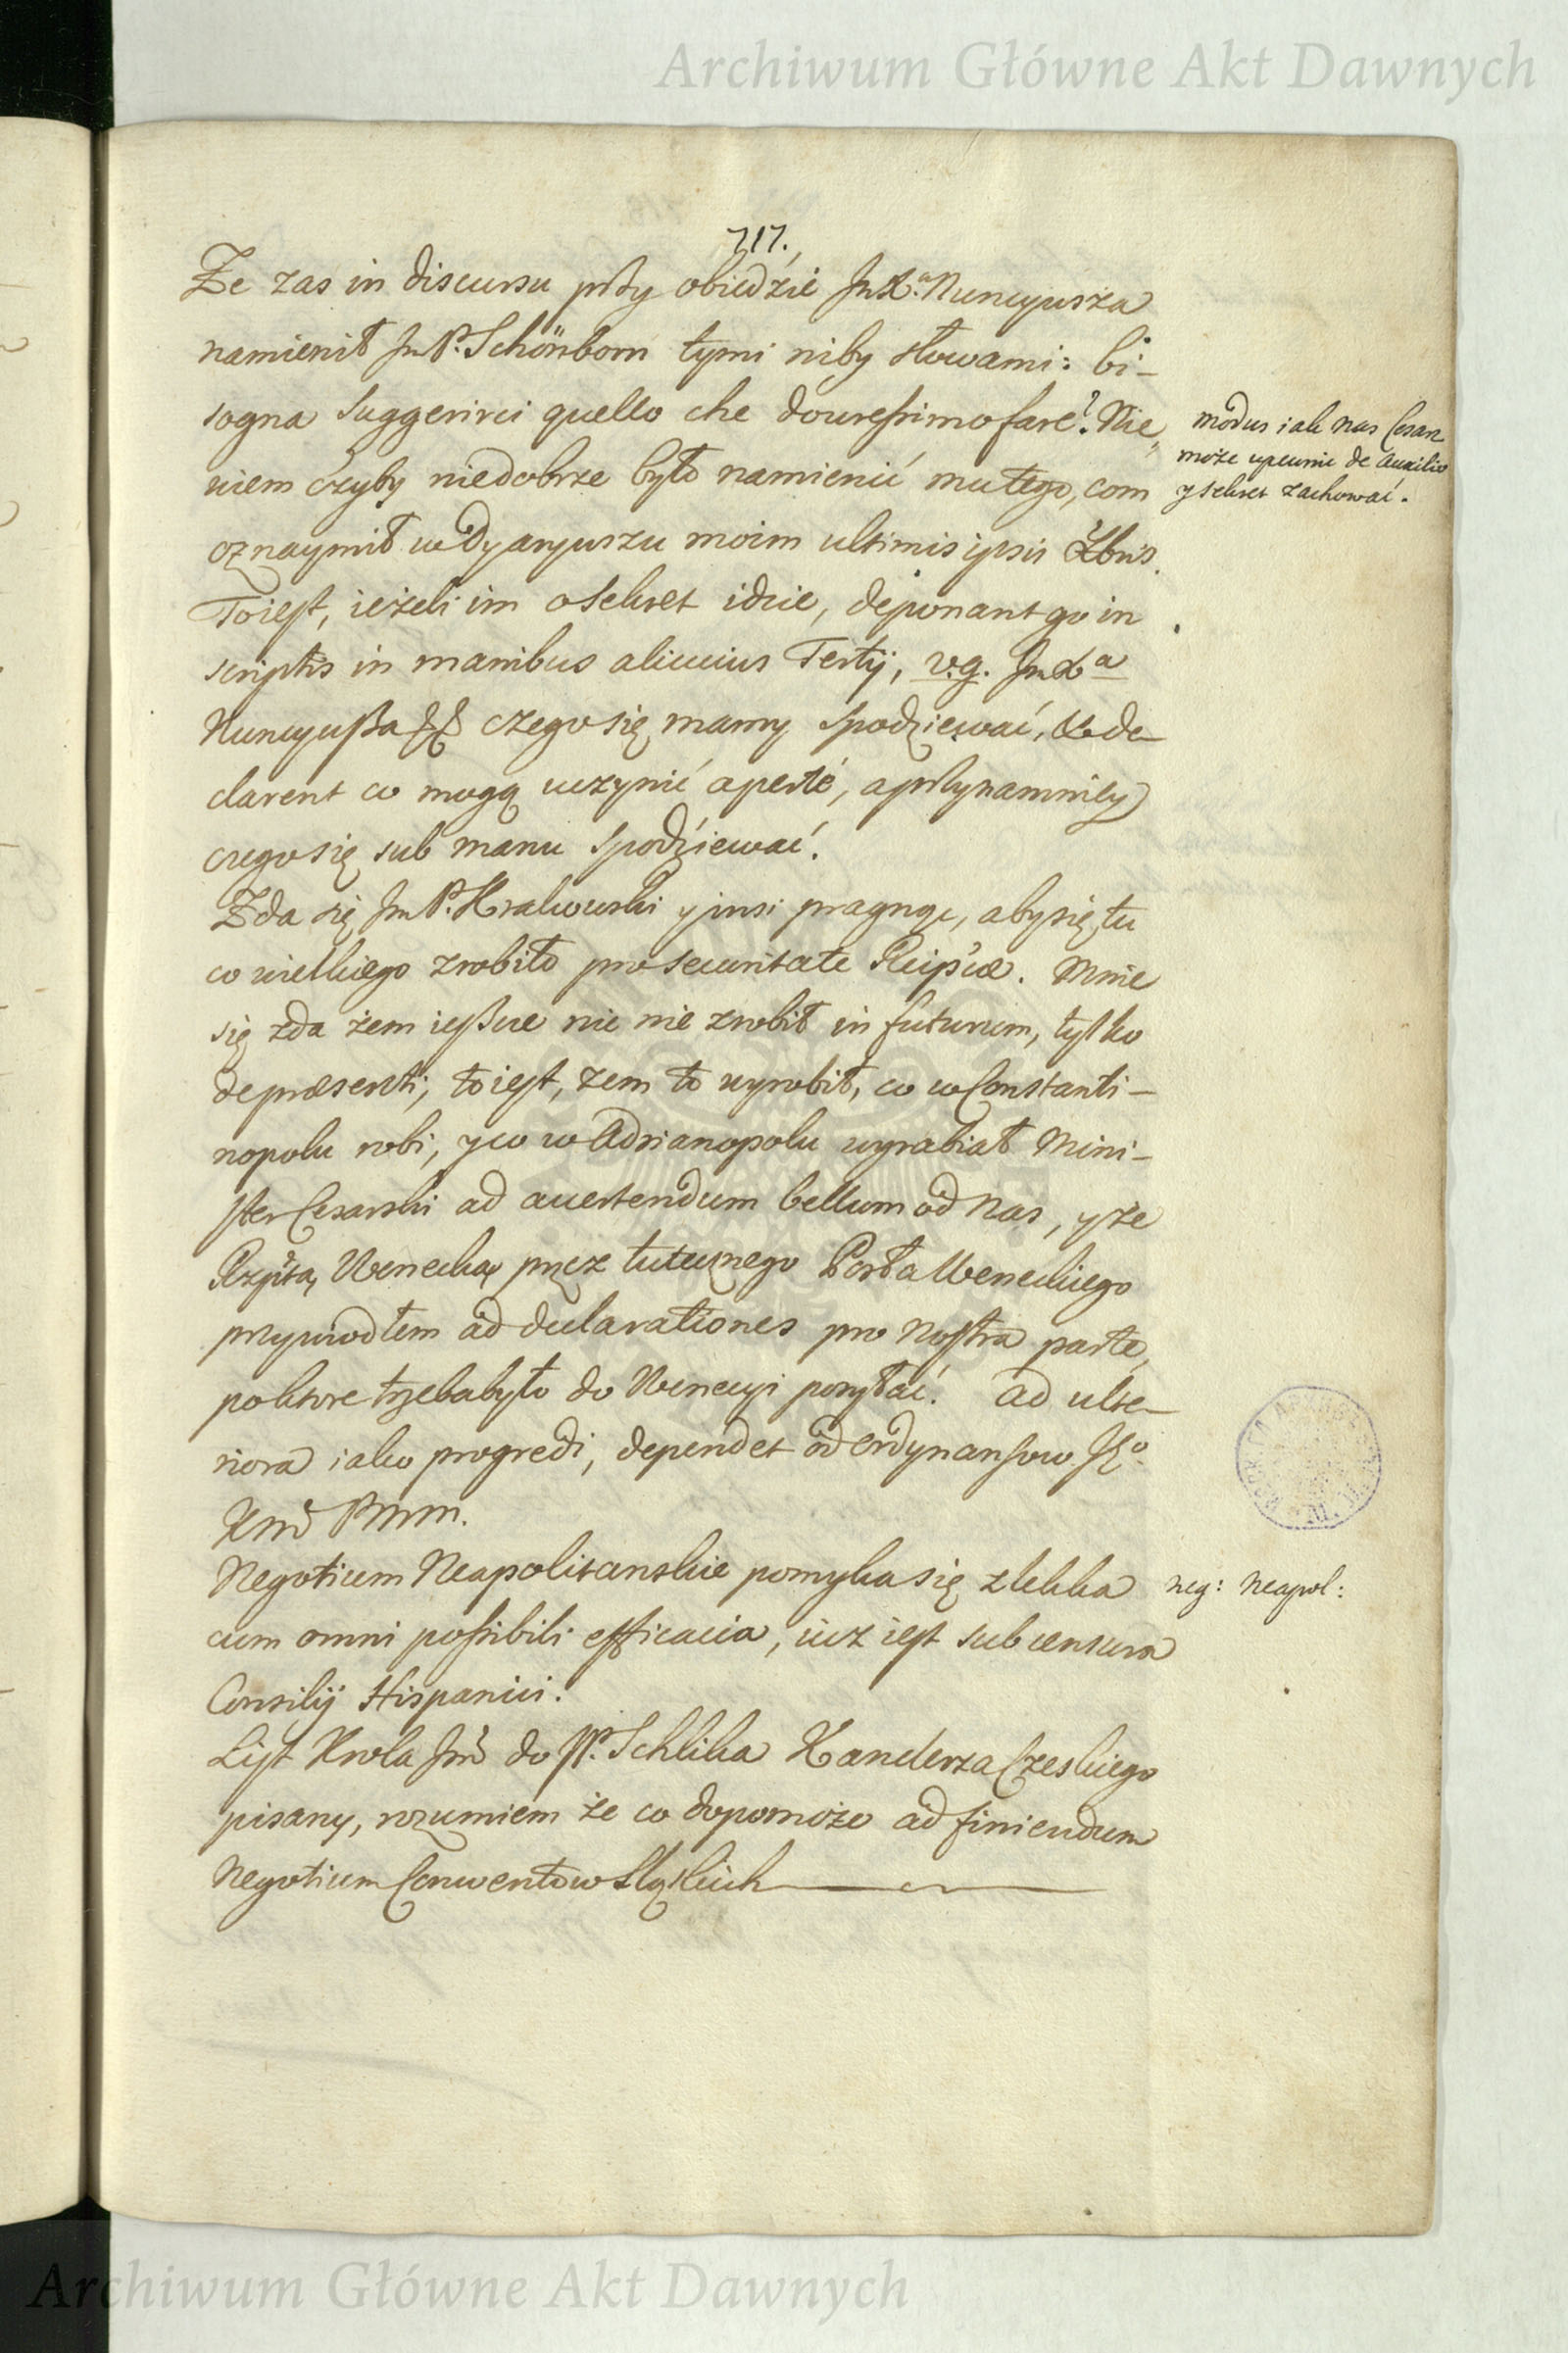 Archiwum Główne Akt Dawnych
717.
Że zas in discursu przy obiedzie JmXa. Nuncyusza
namienił JmP. Schönborn tymi niby słowami: bi-
sogna suggerirci quello che douressimo fare? Nie
wiem czyby niedobrze było namienić mu tego, com
oznaymił w Dyaryuszu moim ultimis ipsis Xbris.
To iest, ieżeli im o sekret idzie, deponant go in
scriptis in manibus alicuius Tertij, v.g. JmXa
Nuncyusza czego się mamy spodziewać, & de-
clarent co mogą uczynić aperté, a przynamniey
czego się sub manu spodziewać.
Zda się JmP. Krakowski y insi pragnąc, aby się tu
co wielkiego zrobiło pro securitate Reip'cæ. Mnie
się zda żem ieszcze nic nie zrobił in futurum, tylko
de præsenti, to iest, żem to wyrobił, co w Constanti-
nopolu robi, y co w Adrianopolu wyrabiał Mini-
ster Cesarski ad auertendum bellum od Nas, y że
Rzpltą Wenecką przez tutecznego Posła Weneckiego
przywiodłem ad declarationes pro Nostra parte,
po ktore trzeba było do Wenecyi posyłać. Ad ulte-
riora iako progredi, dependet od Ordynansow JKo.
Kmci Pmm.
Negotium Neapolitanskie pomyka się zlekka
cum omni possibili efficacia, iuz iest sub censura
Consilij Hispanici.
List Krola Jmci do JP. Schlika Kanclerza Czeskiego
pisany, rozumiem że co dopomoże ad finiendum
Negotium Conwentow Sląskich
modus iak nas Cesarz
może upewnic de Auxilio
y sekret zachować.
neg: Neapol:
Archiwum Główne Akt Dawnych